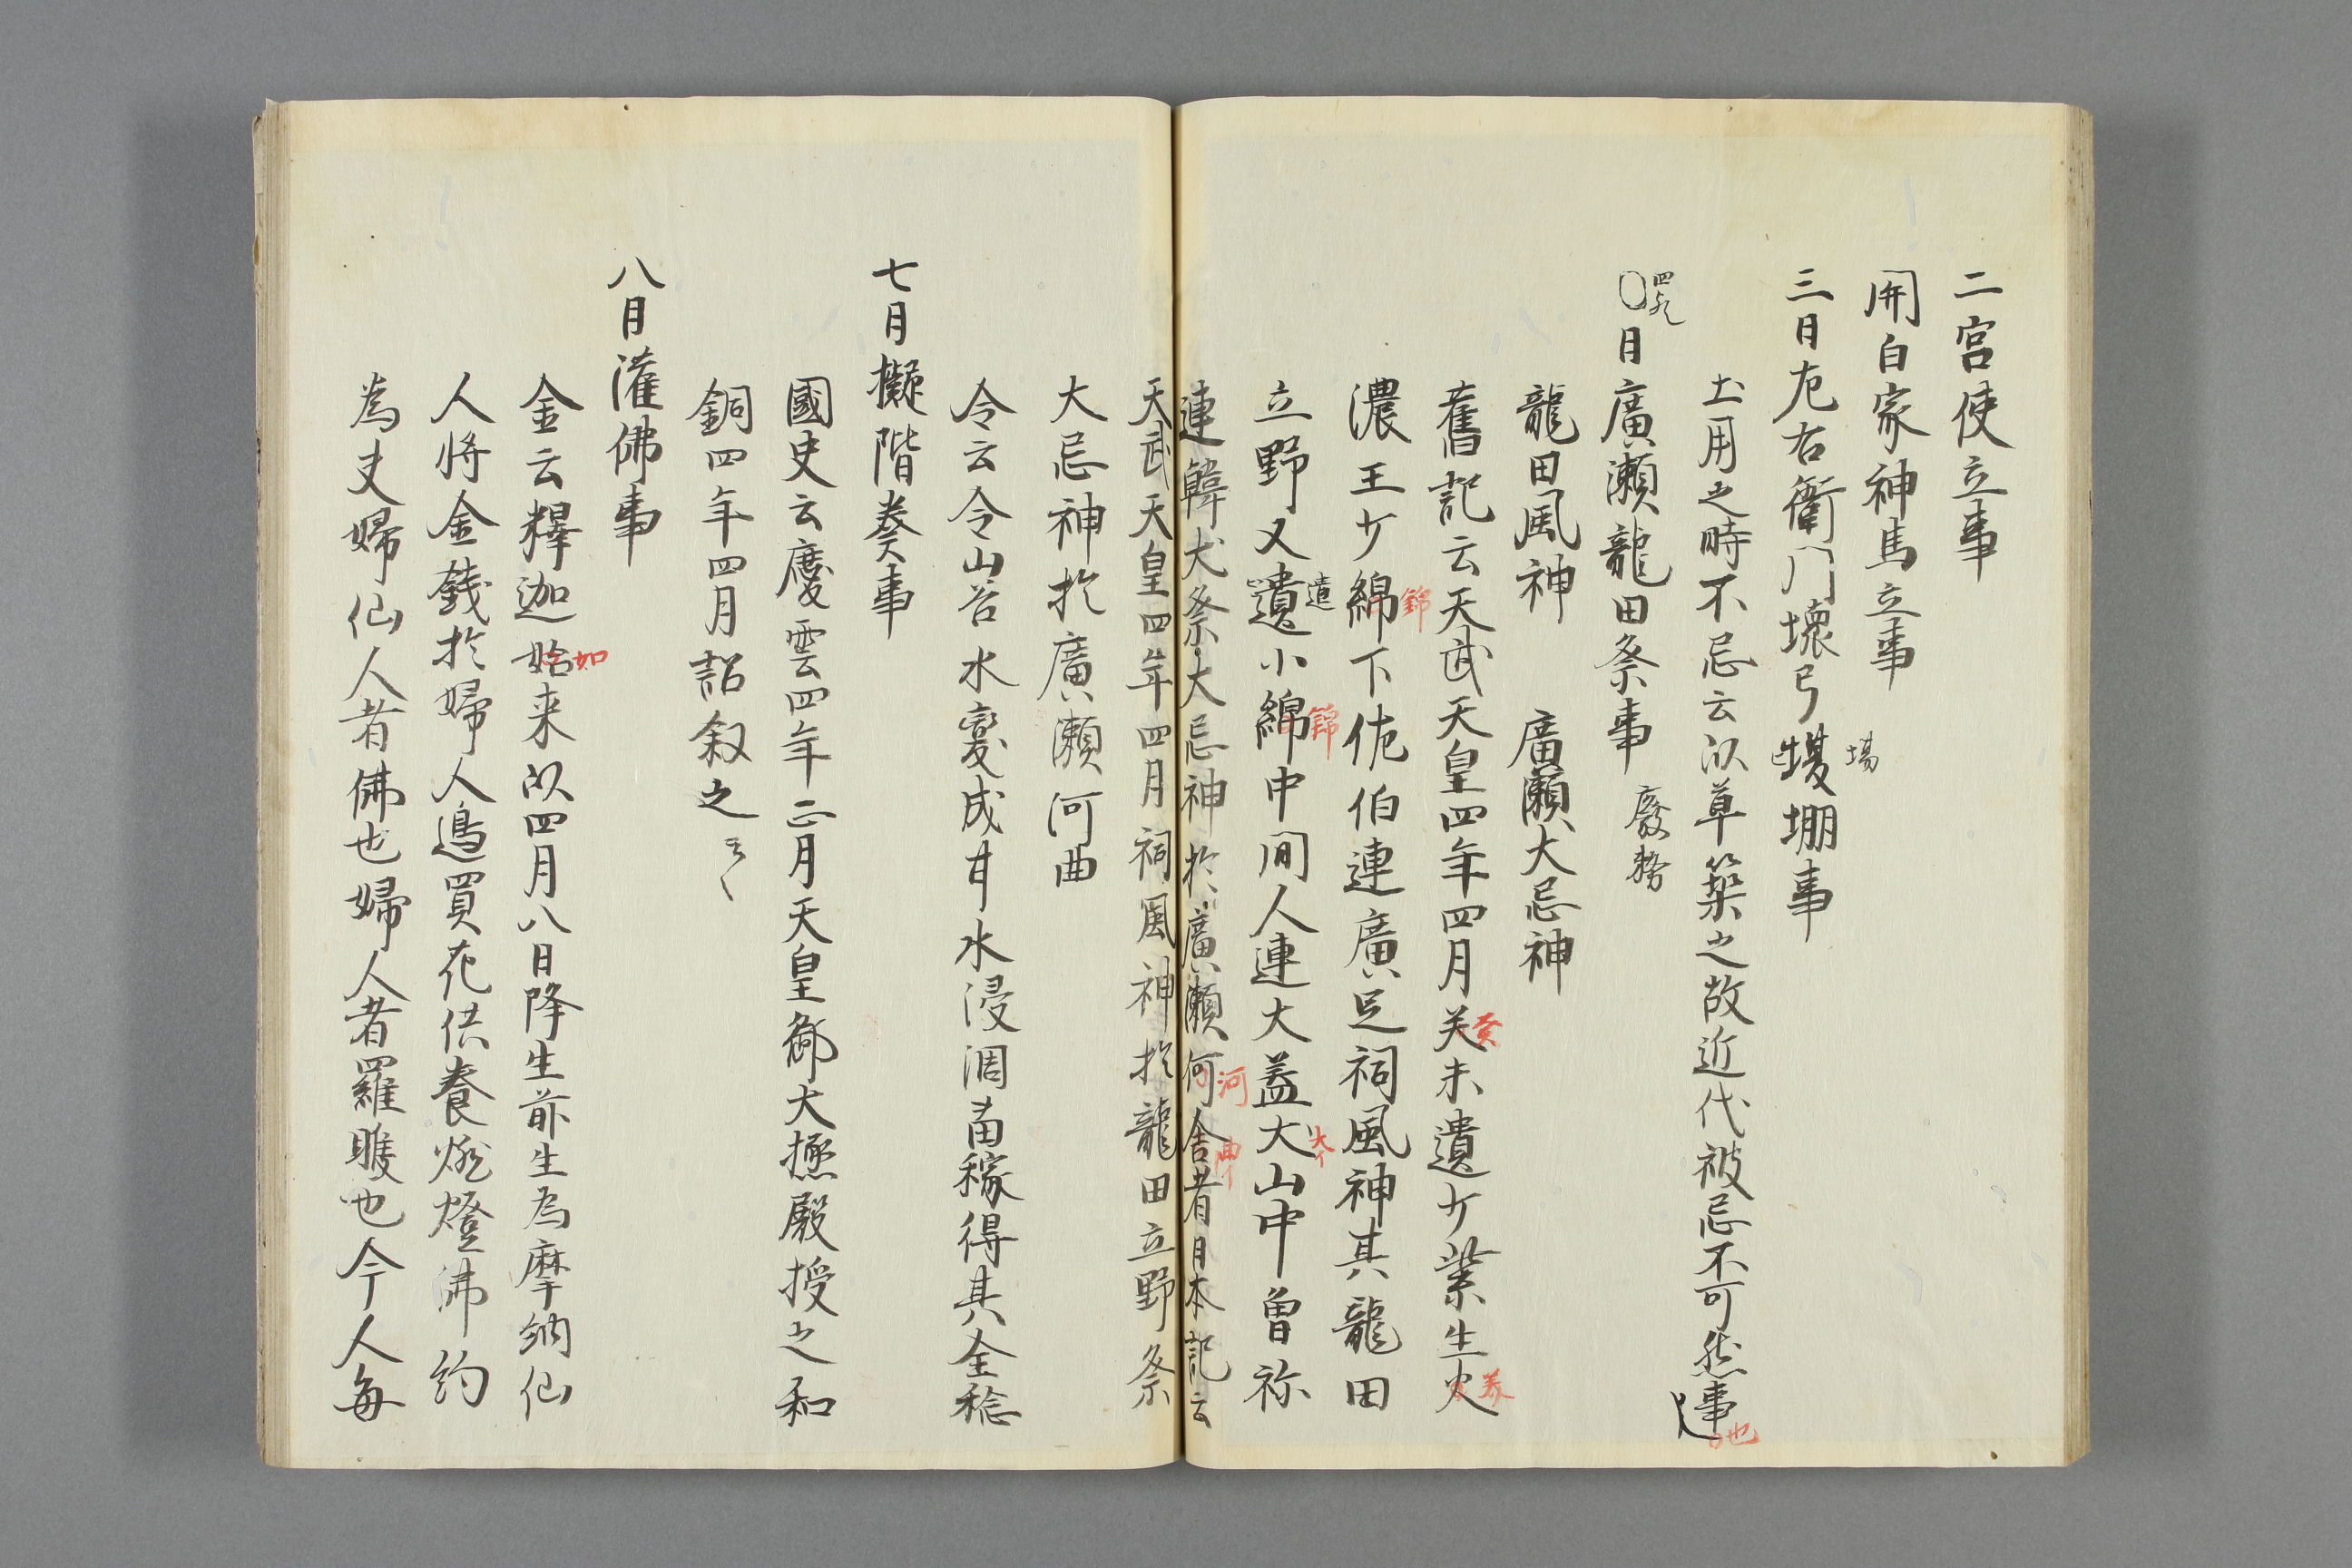 二宮使立事
開白家神馬立事
三日左右衛門壊弓場埓棚事
土用之時不忌云以草築之故近代被忌不可然事也
四歟
〇日廣瀬龍田祭事 廢務
龍田風神 廣瀬大忌神
舊記云天武天皇四年四月关未遺少業生火
癸
美
濃王少綿下佐伯連廣足祠風神其龍田
錦
立野又遺小綿中間人連大盖大山中曽祢
遣
錦
大イ
連韓犬祭大忌神於廣瀬何舍者日本記云
河
曲イ
天武天皇四年四月祠風神於龍田立野祭
大忌神於廣瀬河曲
令云令山谷水変成甘水浸潤苗稼得其全稔
七日擬階奏事
國史云慶雲四年正月天皇御大極殿授之和
銅四年四月詔叙之云々
八日灌佛事
金云釋迦始来以四月八日降生前生為摩納仙
如
人将金錢於婦人邊買花供養燃燈佛約
為丈婦仙人者佛也婦人者羅睺也今人毎